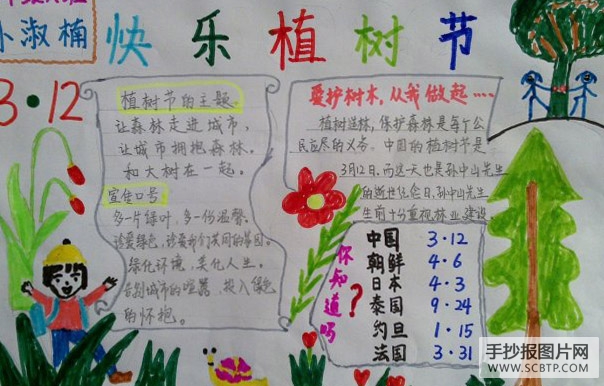 小淑楠
快乐植树节
3·12
植树节的主题
让森林走进城市,
让城市拥抱森林.
和大树在一起。
宣传口号
多一片绿叶,多一份温馨.
珍爱绿色,珍爱我们共同的家园。
绿化环境,美化人生。
告别城市的喧嚣,投入绿色
的怀抱。
爱护树木,从我做起……
植树造林,保护森林是每个公
民应尽的义务。中国的植树节是
3月12日,而这一天也是孙中山先生
的逝世纪念日,孙中山先生
生前十分重视林业建设。
你知道吗?
中国 3·12
朝鲜 4·6
日本 4·3
泰国 9·24
约旦 1·15
法国 3·31
手抄报图片网
WWW.SCBTP.COM